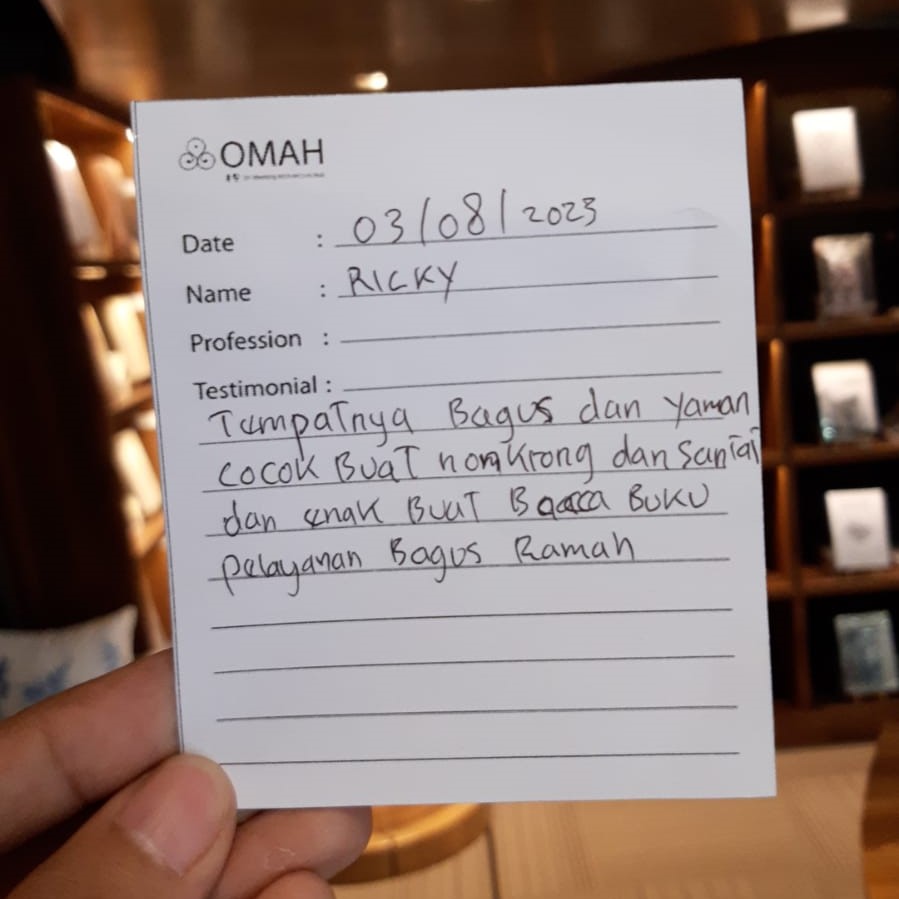 OMAH
Date : 03/08/2023
Name : RICKY
Profession :
Testimonial :
Tempatnya Bagus dan yaman
cocok Buat nongkrong dan santai
dan enak Buat Baca Buku
pelayanan Bagus Ramah